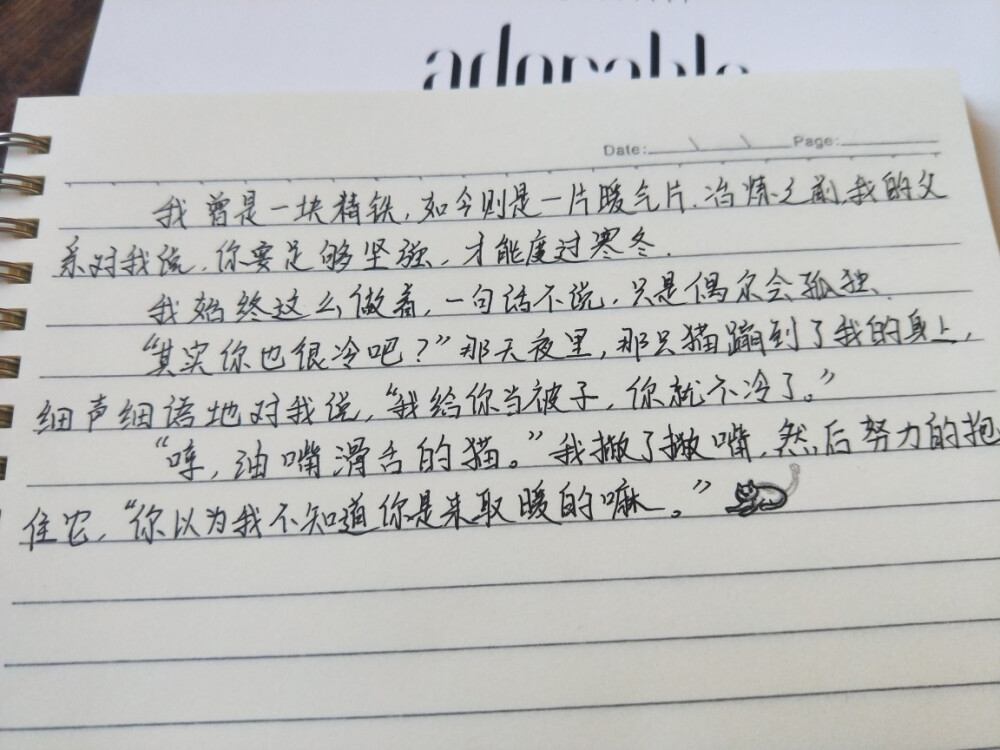 adorable
Date: \ \ Page:
我曾是一块精铁，如今则是一片暖气片.冶炼之前,我的父
亲对我说.你要足够坚强，才能度过寒冬.
我始终这么做着，一句话不说，只是偶尔会孤独.
“其实你也很冷吧？”那天夜里，那只猫蹦到了我的身上，
细声细语地对我说，“我给你当被子，你就不冷了。”
“哼，油嘴滑舌的猫。”我撇了撇嘴，然后努力的抱
住它，“你以为我不知道你是来取暖的嘛。”